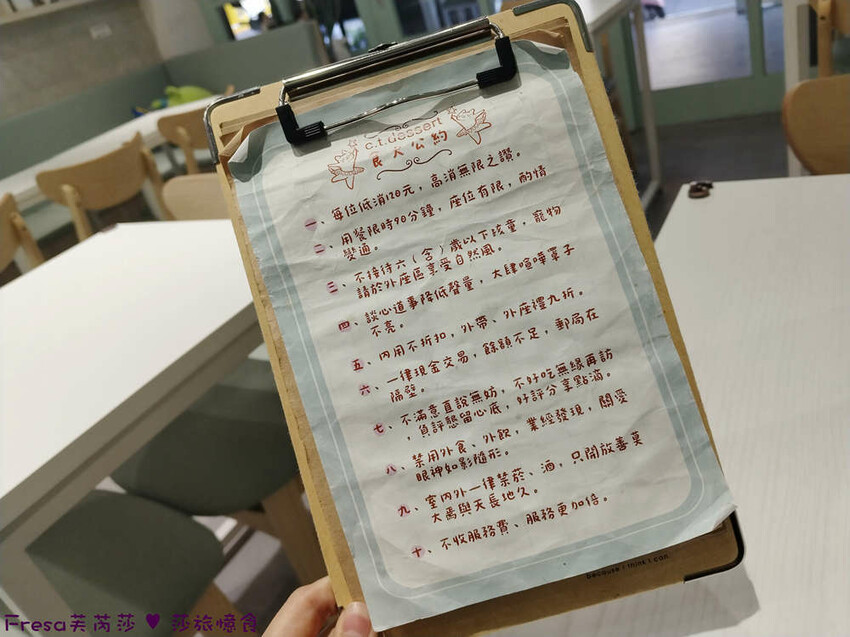 c.t.dessert
食犬公約
一、每位低消120元，高消無限之讚。
二、用餐限時90分鐘，座位有限，酌情
變通。
三、不接待六(含)歲以下孩童，寵物
請於外座區享受自然風。
四、談心道事降低聲量，大肆喧嘩葦子
不亮。
五、內用不折扣，外帶、外座禮九折。
六、一律現金交易，餘額不足，郵局在
隔壁。
七、不滿意直說無妨，不好吃無緣再訪
，負評懇留心底，好評分享點滴。
八、禁用外食、外飲，業經發現，關愛
眼神如影隨形。
九、室內外一律禁菸、酒，只開放善莫
大焉與天長地久。
十、不收服務費、服務更加倍。
because i think i can.
Fresa芙芮莎 ♥ 莎旅憶食